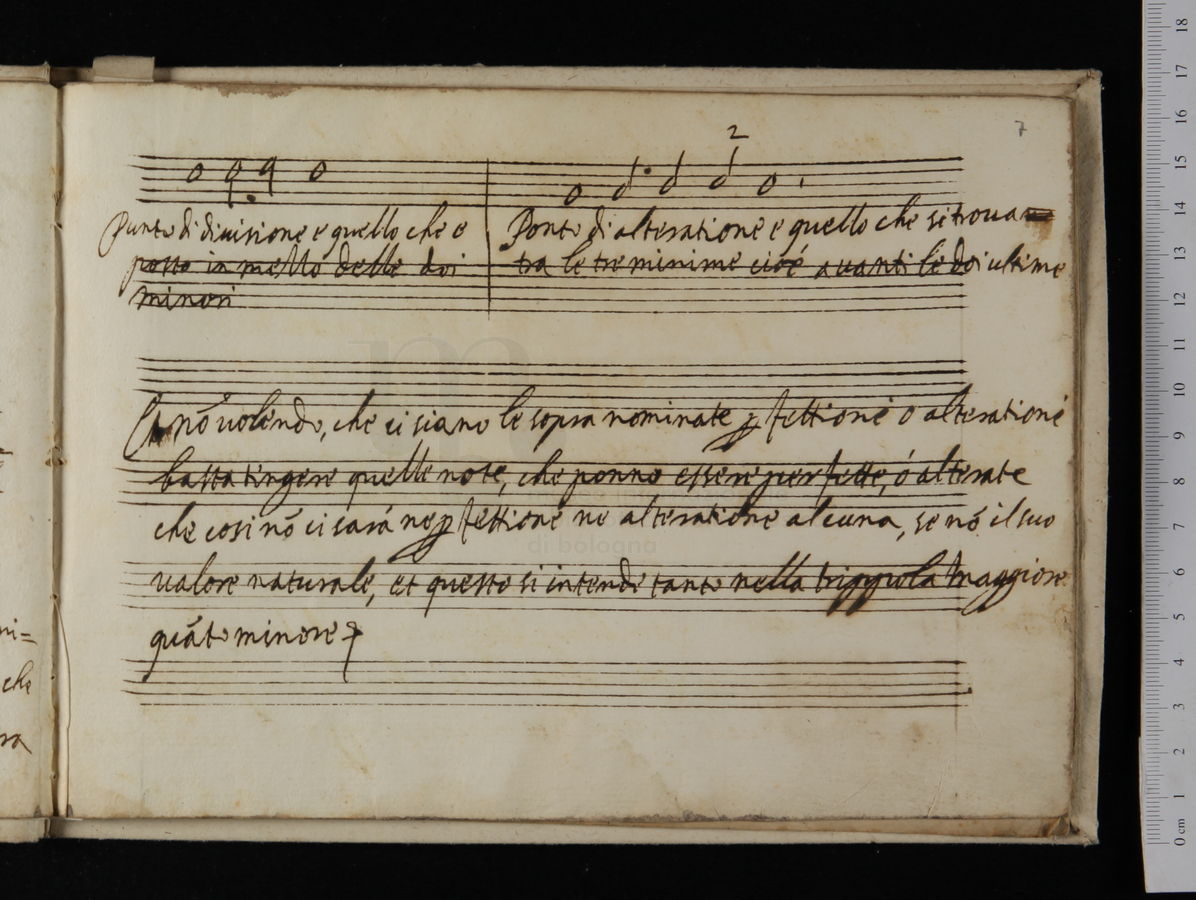 7
2
Punto di divisione e quello che e
posto in mezzo delle doi
minori
Ponto di alteratione e quello che si trova
tra le tre minime cioé avanti le doi ultime
nō volendo, che ci siano le sopra nominate ꝑfettioni o alterationi
basta tingere quelle note, che ponno essere perfette, ó alterate
che cosi nō ci sará ne ꝑfettione ne alteratione alcuna, se nō il suo
valore naturale, et questo si intende tanto nella trippola maggiore
quāto minore
ni=
che
ra
di bologna
18
17
16
15
14
13
12
11
10
9
8
7
6
5
4
3
2
1
0 cm